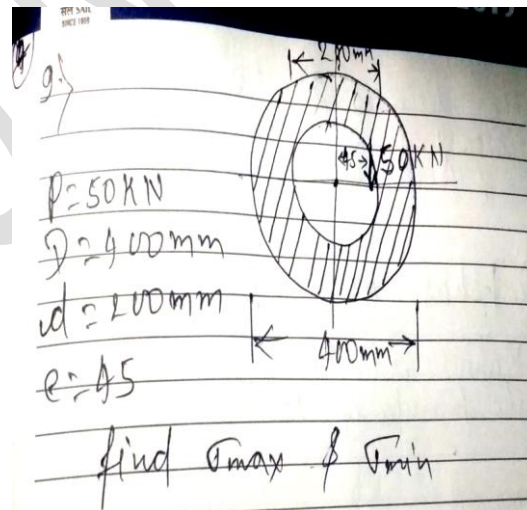 सेल SAIL
SINCE 1958
9:)
200mm
45
50KN
P=50KN
D=400mm
d=200mm
400mm
e=45
find σmax & σmin